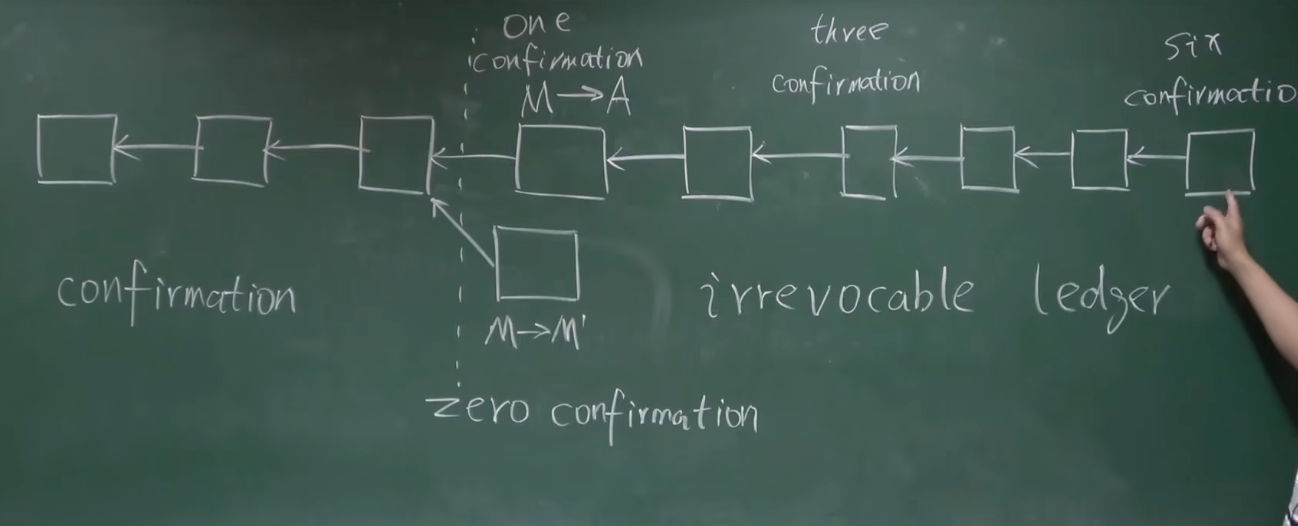 one
confirmation
M→A
three
confirmation
six
confirmatio
confirmation
M→M'
irrevocable ledger
zero confirmation